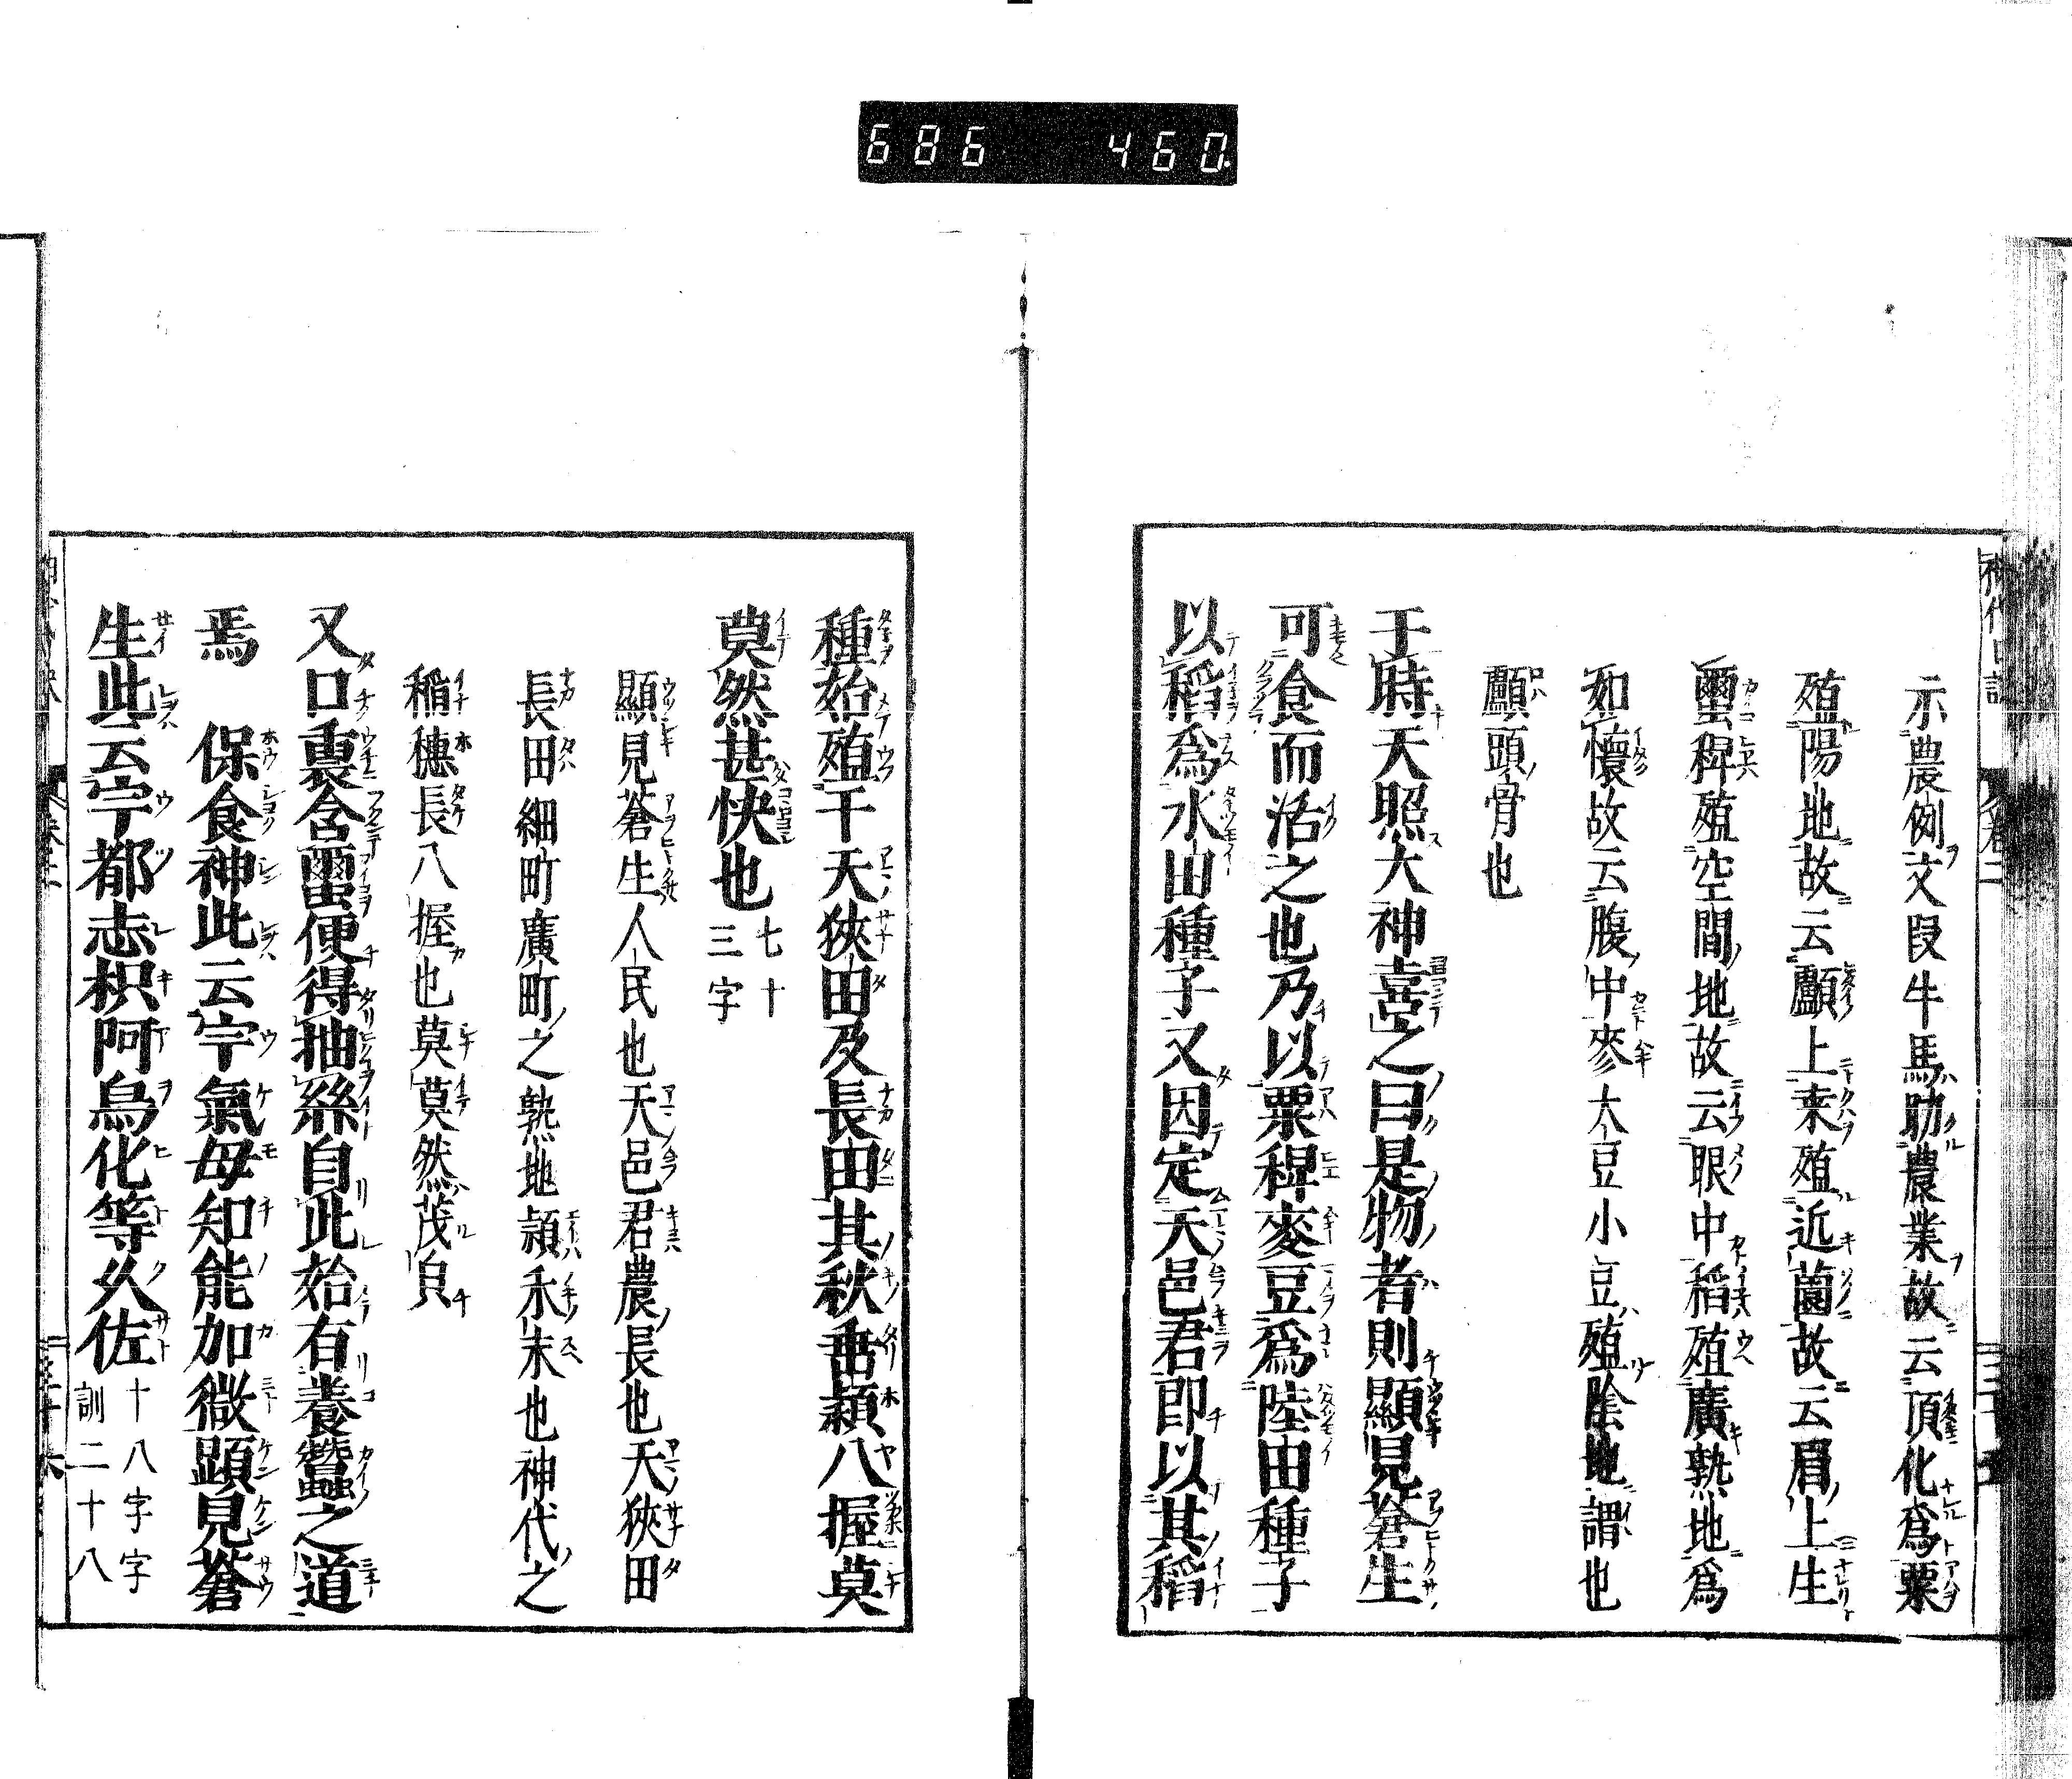 686 460
示農例文段牛馬助農業故云頂化爲粟
殖陽地故云顱上来殖近薗故云眉上生
蠒稗殖空間地故云眼中稻殖廣熟地爲
如懷故云腹中麥大豆小豆殖陰地謂也
顱頭骨也
于時天照大神喜之曰是物者則顯見蒼生
可食而活之也乃以粟稗麥豆爲陸田種子
以稻爲水田種子又因定天邑君即以其稻
種始殖于天狹田及長田其秋垂穎八握莫
莫然甚快也 七十三字
顯見蒼生人民也天邑君農長也天狹田
長田細町廣町之熟地穎禾末也神代之
稲穗長八握也莫莫然茂皃
又口裏含蠒便得抽絲自此始有養蠶之道
焉 保食神此云宇氣毎知能加微顕見蒼
生此云宇都志枳阿烏化等久佐 十八字字訓二十八